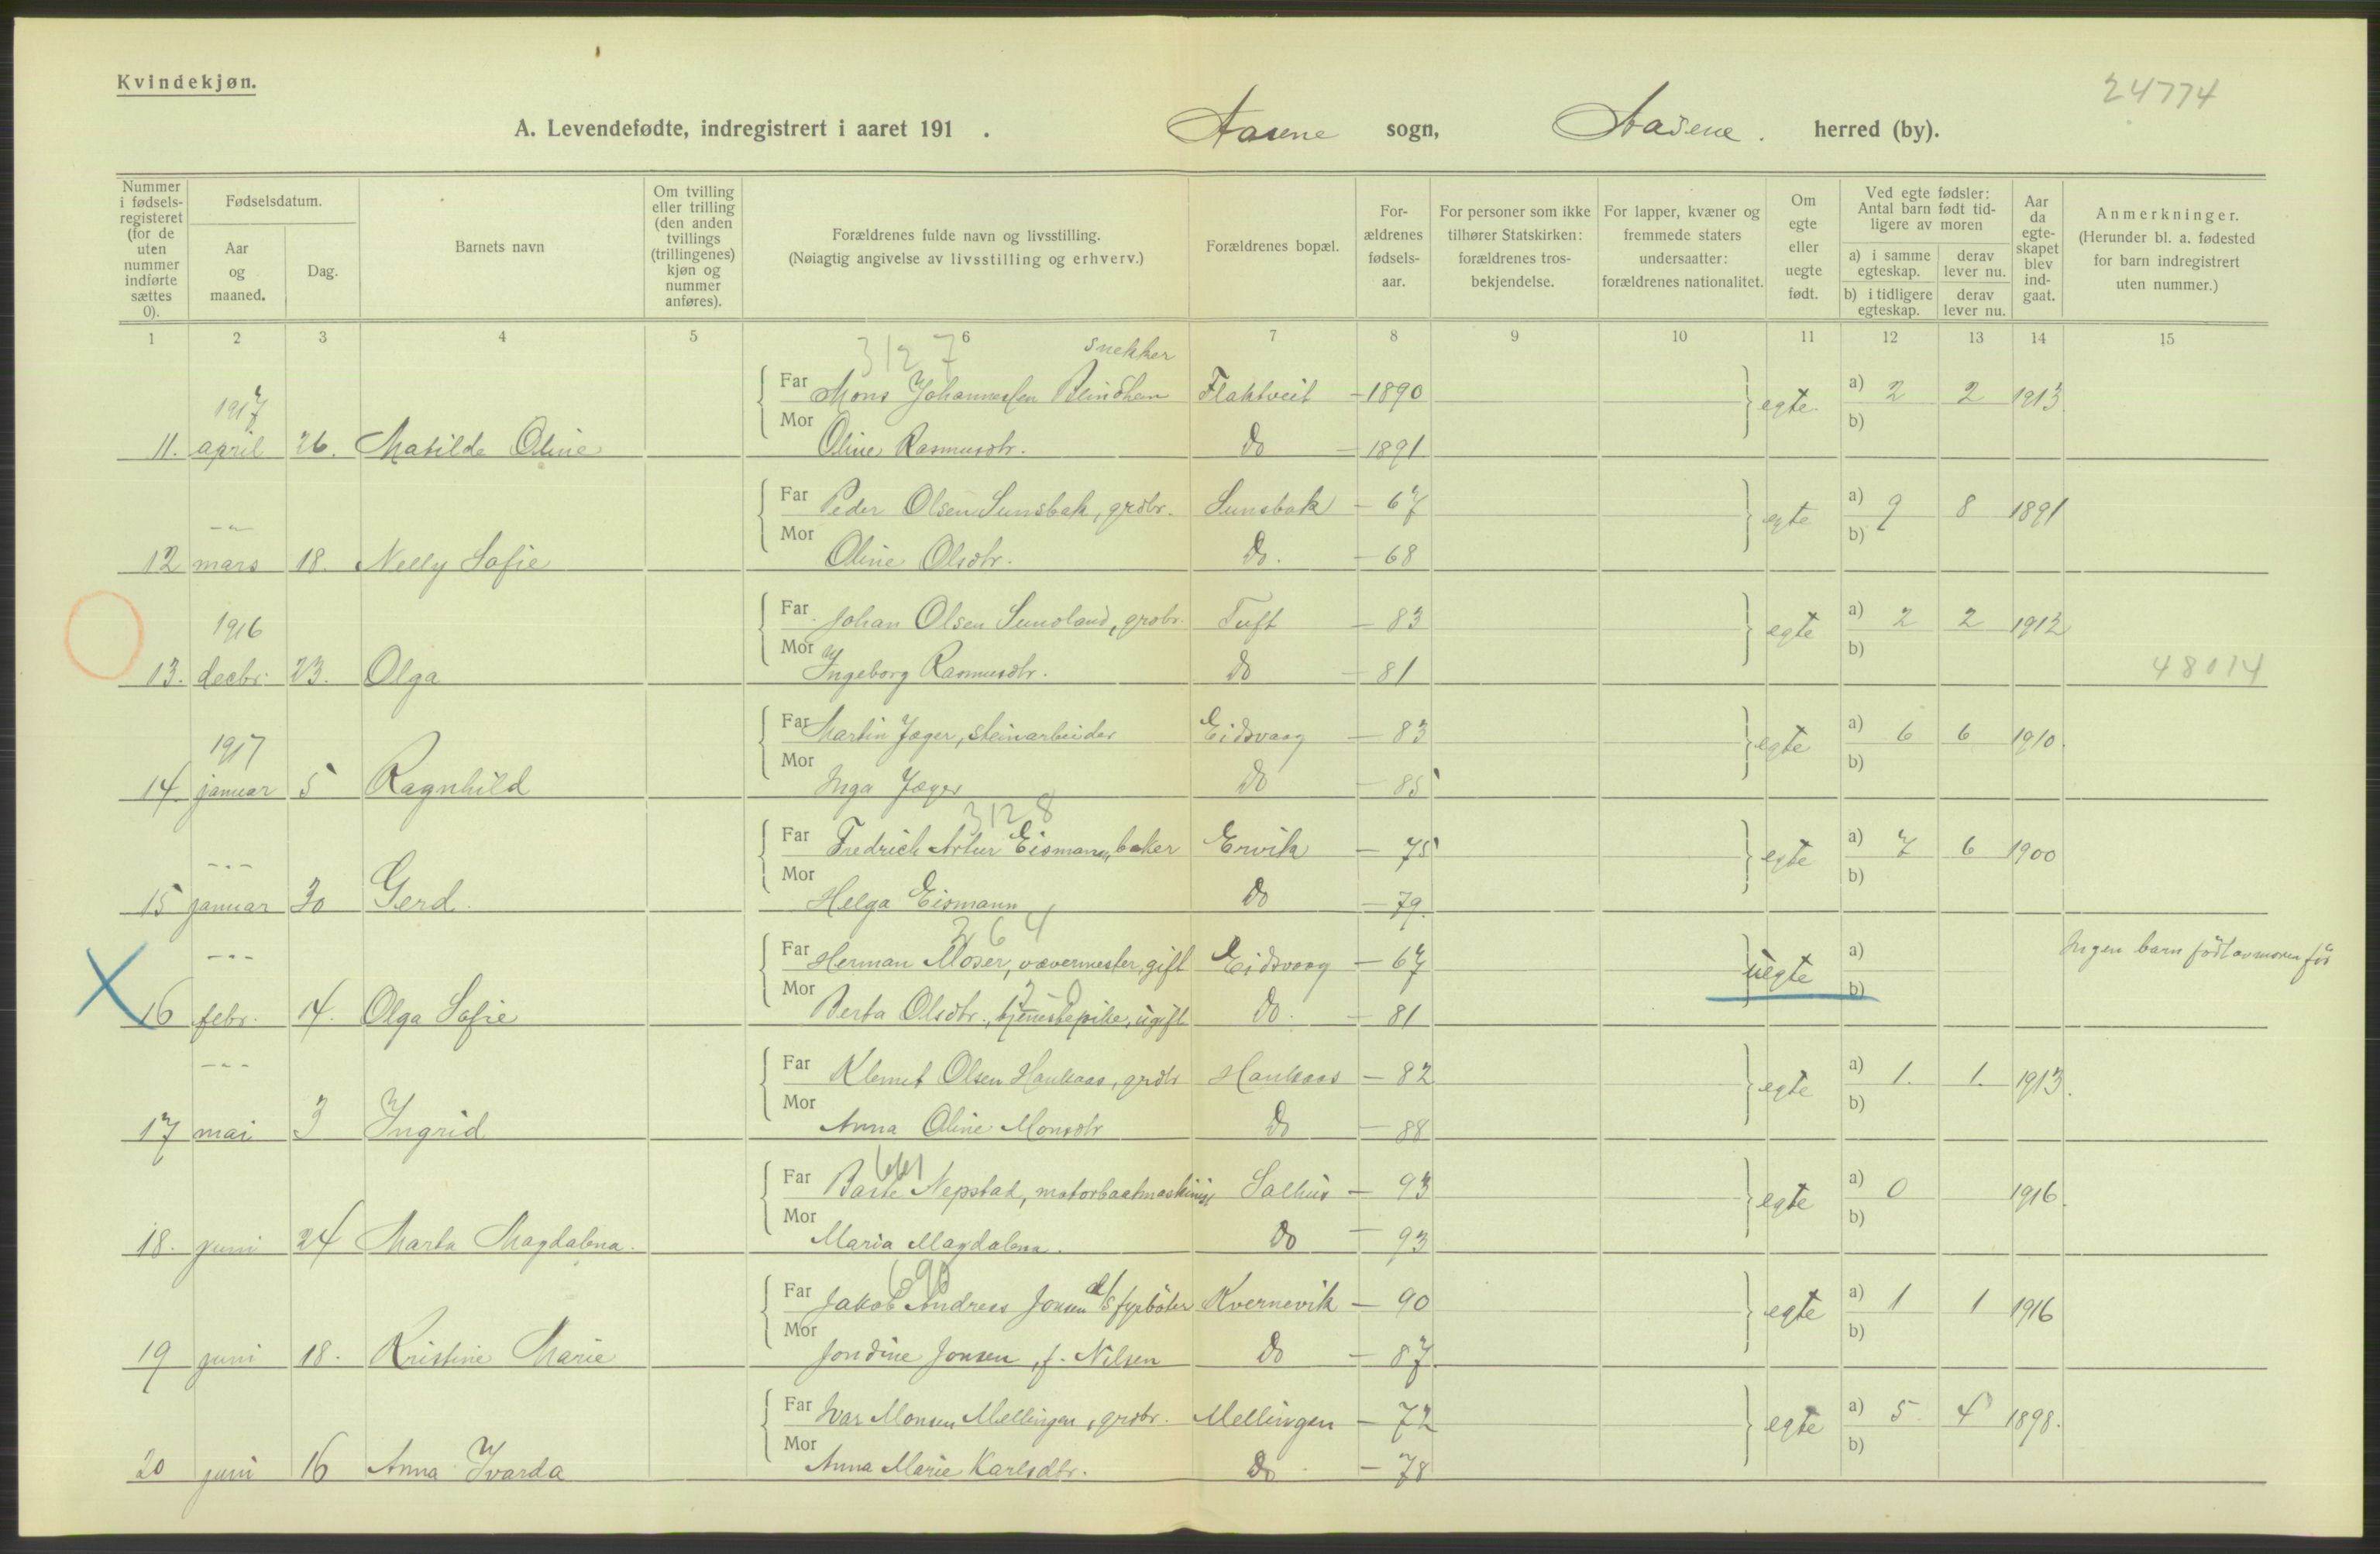 Kvindekjøn.
24774
A. Levendefødte, indregistrert i aaret 191 . Aasene sogn, Aasene. herred (by).
Nummer i fødsels-registeret (for de uten nummer indførte sættes 0).
Fødselsdatum.
Aar og maaned.
Dag.
Barnets navn
Om tvilling eller trilling (den anden tvillings (trillingenes) kjøn og nummer anføres).
Forældrenes fulde navn og livsstilling.
(Nøiagtig angivelse av livsstilling og erhverv.)
Forældrenes bopæl.
For-ældrenes fødsels-aar.
For personer som ikke tilhører Statskirken: forældrenes tros-bekjendelse.
For lapper, kvæner og fremmede staters undersaatter: forældrenes nationalitet.
Om egte eller uegte født.
Ved egte fødsler: Antal barn født tid-ligere av moren
a) i samme egteskap.
derav lever nu.
b) i tidligere egteskap.
derav lever nu.
Aar da egte-skapet blev ind-gaat.
Anmerkninger.
(Herunder bl. a. fødested for barn indregistrert uten nummer.)
1 2 3 4 5 6 7 8 9 10 11 12 13 14 15
3127 snekker
1917 Far Mons Johannessen Blindheim Flaktveit - 1890 egte a) 2 2 1913
b)
11. april 26. Matilde Oline Mor Oline Rasmusdtr. do - 1891
-"- Far Peder Olsen Sunsbak, grdbr. Sunsbak - 67 egte a) 9 8 1891
b)
12 mars 18. Nelly Sofie Mor Oline Olsdtr. do. - 68
1916 Far Johan Olsen Sundland, grdbr. Tuft - 83 egte a) 2 2 1912
b)
13. decbr. 23. Olga Mor Ingeborg Rasmusdtr. do - 81 48014
1917 Far Martin Jæger, steinarbeider Eidsvaag - 83 egte a) 6 6 1910.
b)
14. januar 5 Ragnhild Mor Inga Jæger do - 85
3128
-"- Far Fredrich Artur Eismann, baker Ervik - 75 egte a) 7 6 1900
b)
15 januar 30 Gerd. Mor Helga Eismann do - 79.
264
-"- Far Herman Moser, vævermester, gift Eidsvaag - 67 uegte a) Ingen barn født av moren før
b)
16 febr. 14. Olga Sofie Mor Berta Olsdtr., tjenestepike, ugift do. - 81
-"- Far Klemet Olsen Haukaas, grdbr Haukaas - 82 egte a) 1. 1. 1913.
b)
17 mai 3 Ingrid Mor Anna Oline Monsdtr do - 88
661
Far Baste Nepstad, motorbaatmaskinist Salhus - 93 egte a) 0 1916.
b)
18. juni 24 Marta Magdalena. Mor Maria Magdalena. do - 93
690
Far Jakob Andreas Jonsen d/s fyrbøter Kvernevik - 90 egte a) 1 1 1916
b)
19 juni 18. Kristine Marie Mor Jondine Jonsen, f. Nilsen do - 87.
Far Ivar Monsen Mellingen, grdbr. Mellingen - 72 egte a) 5 4 1898.
b)
20 juni 16 Anna Ivarda Mor Anna Marie Karlsdtr. do - 78